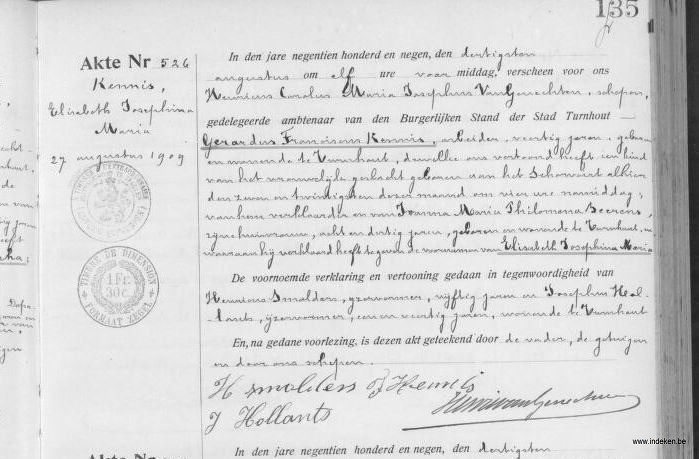 135
Akte Nr 526
Kennis,
Elisabeth Josephina
Maria
27 augustus 1909
TIMBRE DE DIMENSION
1 Fr.
30C.
FORMAAT ZEGEL
In den jare negentien honderd en negen, den dertigsten
augustus om elf ure voor middag, verscheen voor ons
Henricus Carolus Maria Josephus VanGenechten, schepen,
gedelegeerde ambtenaar van den Burgerlijken Stand der Stad Turnhout
Gerardus Franciscus Kennis, arbeider, veertig jaren, geboren
en wonende te Turnhout, dewelke ons vertoond heeft een kind
van het vrouwelijk geslacht geboren aan het Schorvoort alhier
den zeven en twintigsten dezer maand om vier ure namiddag,
van hem verklaarder en van Joanna Maria Philomena Beerens,
zijne huisvrouw, acht en dertig jaren, geboren en wonende te Turnhout, en
waaraan hij verklaard heeft te geven de voornamen van Elisabeth Josephina Maria
De voornoemde verklaring en vertooning gedaan in tegenwoordigheid van
Henricus Smolders, ijzervormer, vijftig jaren en Josephus Hol-
lants, ijzervormer, een en veertig jaren, wonende te Turnhout
En, na gedane voorlezing, is dezen akt geteekend door de vader, de getuigen
en door ons schepen.
H Smolders F Kennis
J Hollants
Akte Nr
In den jare negentien honderd en negen, den dertigsten
www.indeken.be